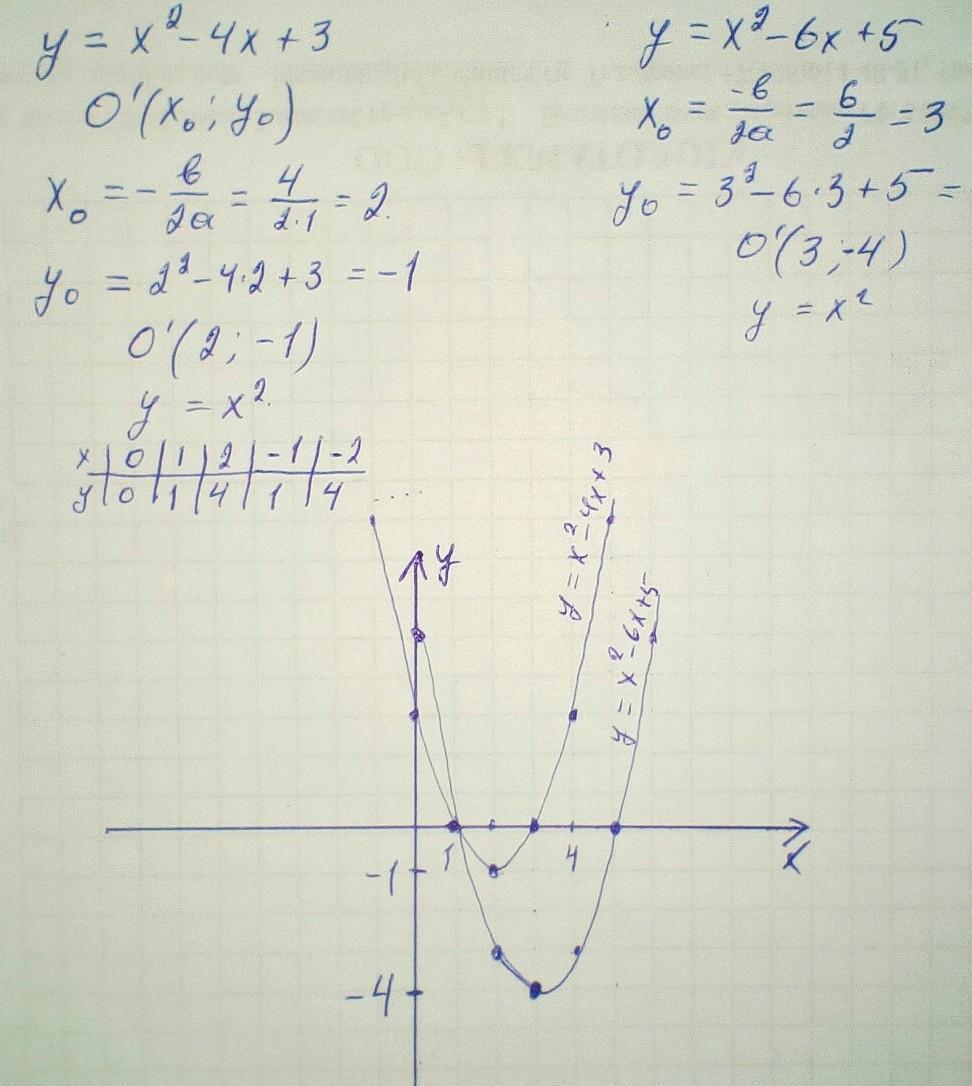 y = x² - 4x + 3
O'(x₀; y₀)
x₀ = - в/2a = 4/2·1 = 2.
y₀ = 2² - 4·2 + 3 = -1
O'(2; -1)
y = x².
x | 0 | 1 | 2 | -1 | -2
y | 0 | 1 | 4 | 1 | 4 ....
y = x² - 6x + 5
x₀ = -в/2a = 6/2 = 3
y₀ = 3² - 6·3 + 5 =
O'(3; -4)
y = x²
y
y = x² - 4x + 3
y = x² - 6x + 5
1
4
x
-1
-4